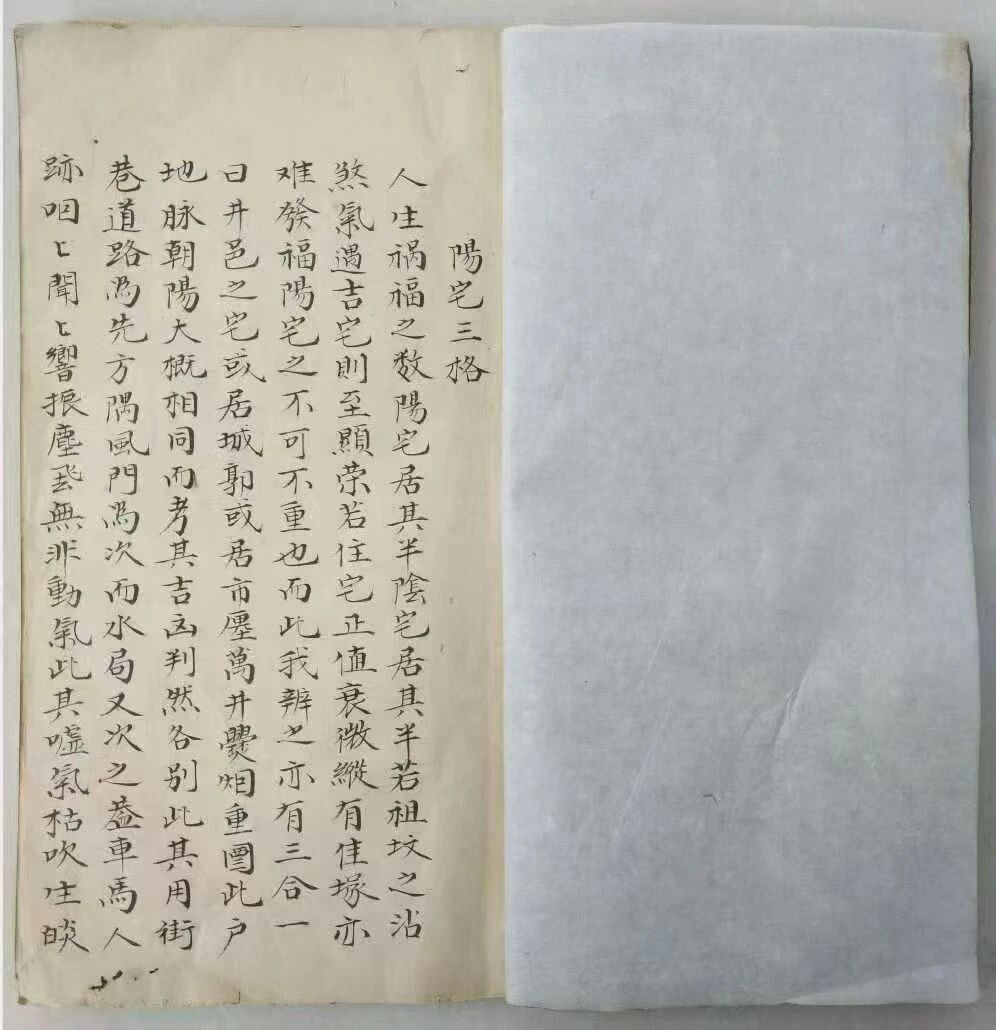 陽宅三格
人生祸福之数陽宅居其半陰宅居其半若祖坟之沾
煞氣遇吉宅則至顯荣若住宅正值衰微縱有佳塚亦
难發福陽宅之不可不重也而此我辨之亦有三合一
曰井邑之宅或居城郭或居市廛萬井爨烟重圍此户
地脉朝陽大概相同而考其吉凶判然各别此其用街
巷道路為先方隅風門為次而水局又次之蓋車馬人
跡咽〻聞〻響振塵飛無非動氣此其噓氣枯吹生燄